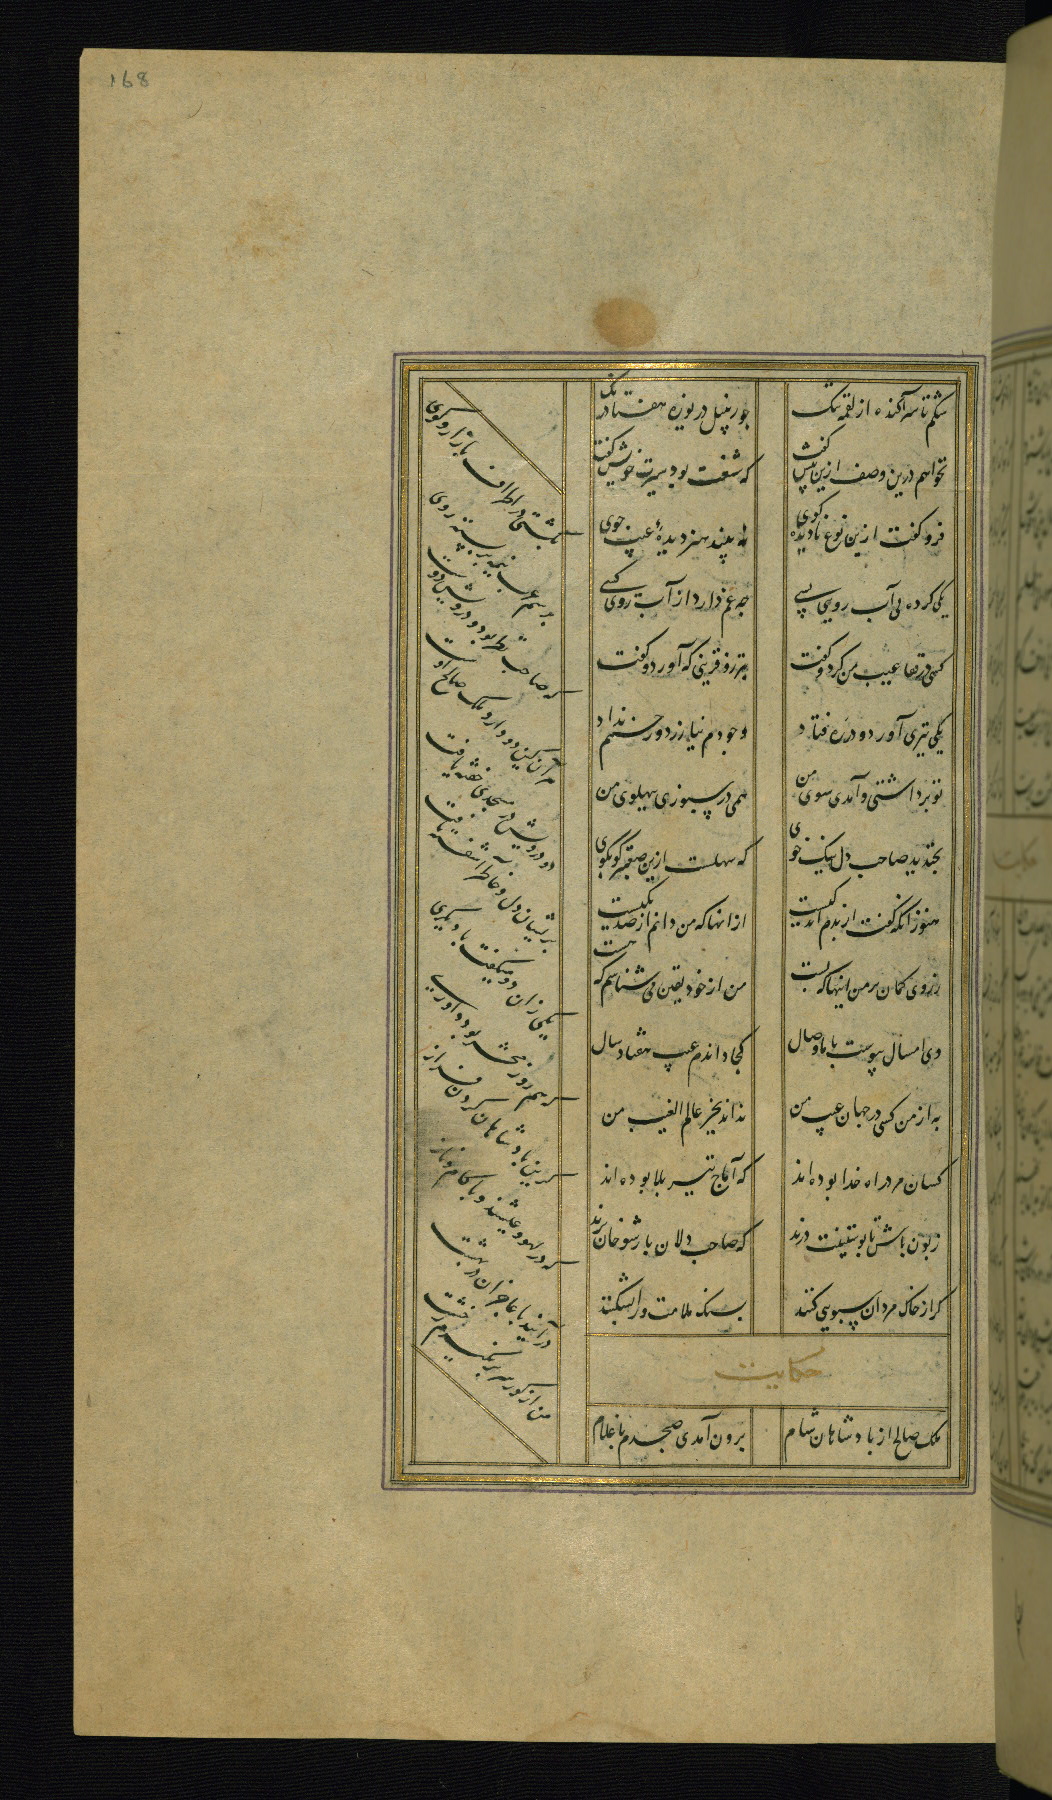 168
شکم تا سر آکنده از لقمه تنک چو زنبیل دریوزه هفتاد رنک
نخواهم درین وصف ازین بیش کفت که شنعت بود سیرت خویش کفت
فرو کفت ازین نوع نادیده کوی نه بیند هنر دیدهٔ عیب جوی
یکی کرده بی آب رویی بسی چه غم دارد از آب روی کسی
کسی در قفا عیب من کرد و کفت بتر زو قرینی که آورد و کفت
یکی تیری آورد و در ره فتاد وجودم نیازرد و رنجم نداد
تو برداشتی و آمدی سوی من همی در سپوزی بپهلوی من
بخندید صاحب دل نیک خوی که سهلست ازین صعبتر کو بکوی
هنوز آنکه کفت از بدم اندکیست از انها که من دانم از صد یکیست
ز روی کمان بر من اینها که بست من از خود یقین می شناسم که هست
وی امسال پیوست با ما وصال کجا داندم عیب هفتاد سال
به از من کسی در جهان عیب من نداند بجز عالم الغیب من
کسان مرد راه خدا بوده اند که آماج تیر بلا بوده اند
زبون باش تا پوستینت درند که صاحب دلان بار شوخان برند
کر از خاک مردان سبویی کنند بسنک ملامت ورا بشکنند
حکایت
ملک صالح از پادشاهان شام برون آمدی صبحدم با غلام
بکشتی در اطراف بازار و کوی
برسم عرب نیمه بر بسته روی
که صاحب نظر بود و درویش دوست
هر آن کین دو دارد ملک صالح اوست
دو درویش در مسجدی خفته یافت
پریشان دل و خاطر آشفته یافت
یکی زان دو میکفت با دیکری
که هم روز محشر بود داوری
کر این پادشاهان کردن فراز
که در لهو و عیشند و با کام و ناز
درآیند با عاجزان در بهشت
من از کور سر بر نکیرم ز خشت